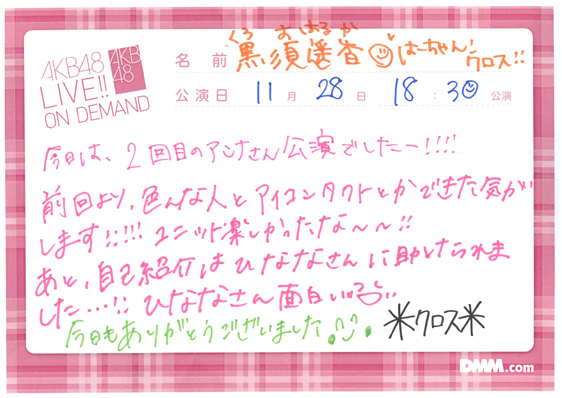 AKB48
LIVE!!
ON DEMAND
AKB
48
くろ すはるか
名前 黒須遥香 はーちゃん!
クロス!!
公演日 11月 28日 18:30 公演
今日は、2回目のアンナさん公演でしたー!!!!
前回より、色んな人とアイコンタクトとかできた気が
します!!!!! ユニット楽しかったな〜〜!!
あと、自己紹介はひななさんに助けられま
した…!! ひななさん面白い
今日もありがとうございました
米クロス米
DMM.com